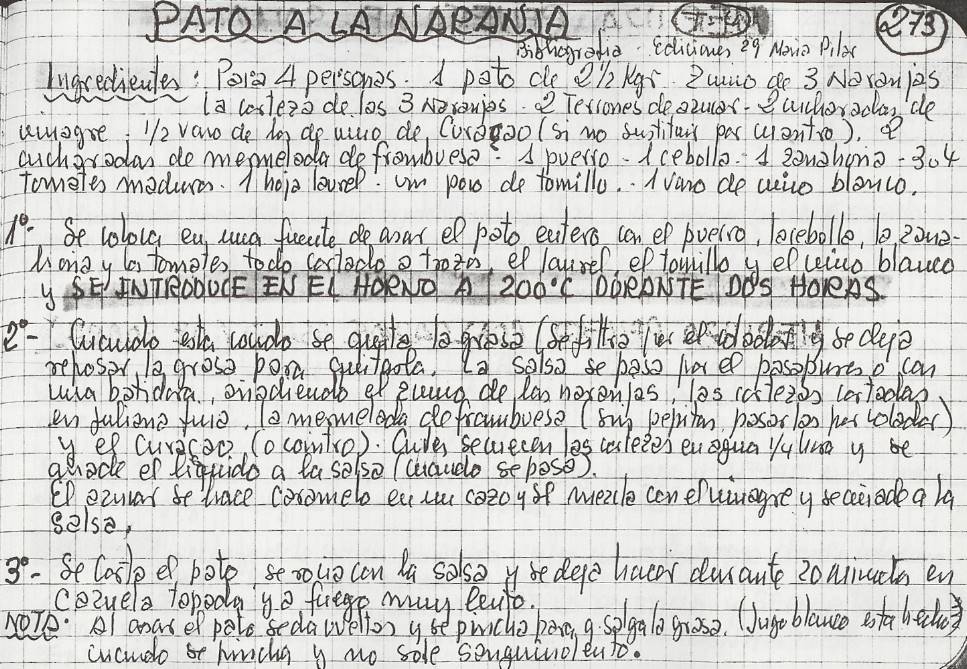 PATO A LA NARANJA 273
Bibliografia. Ediciones 29 Maria Pilar
Ingredientes: Para 4 personas. 1 pato de 2 1/2 Kgr. Zumo de 3 Naranjas
La corteza de las 3 Naranjas. 2 Terrones de azucar - 2 cucharadas de
vinagre. 1/2 vaso de los de vino de Curaçao (si no sustituir por cuantro). 2
cucharadas de mermelada de frambuesa. 1 puerro - 1 cebolla. 1 zanahoria - 3 o 4
Tomates maduros. 1 hoja laurel. un poco de tomillo. 1 vaso de vino blanco.
1º- Se coloca en una fuente de asar el pato entero con el puerro, la cebolla, la zana-
horia y los tomates todo cortado a trozos, el laurel, el tomillo y el vino blanco
y SE INTRODUCE EN EL HORNO A 200°C DURANTE DOS HORAS.
2º- Cuando esta cocido se quita la grasa (se filtra por el colador y se deja
reposar, la grasa para quitarla. La salsa se pasa por el pasapures o con
una batidora, añadiendo el zumo de las naranjas, las cortezas cortadas
en juliana fina, la mermelada de frambuesa (sin pepitas, pasarlas por colador)
y el Curaçao (o cointro). Antes se cuecen las cortezas en agua 1/4 hora y se
añade el líquido a la salsa (cuando se pasa).
El azucar se hace caramelo en un cazo y se mezcla con el vinagre y se añade a la
salsa.
3º- Se Corta el pato, se rocia con la salsa y se deja hacer durante 20 minutos en
Cazuela tapada y a fuego muy lento.
NOTA: Al asar el pato se da vueltas y se pincha para q. salga la grasa. (Jugo blanco esta hecho)
cuando se pincha y no sale sanguinolento.